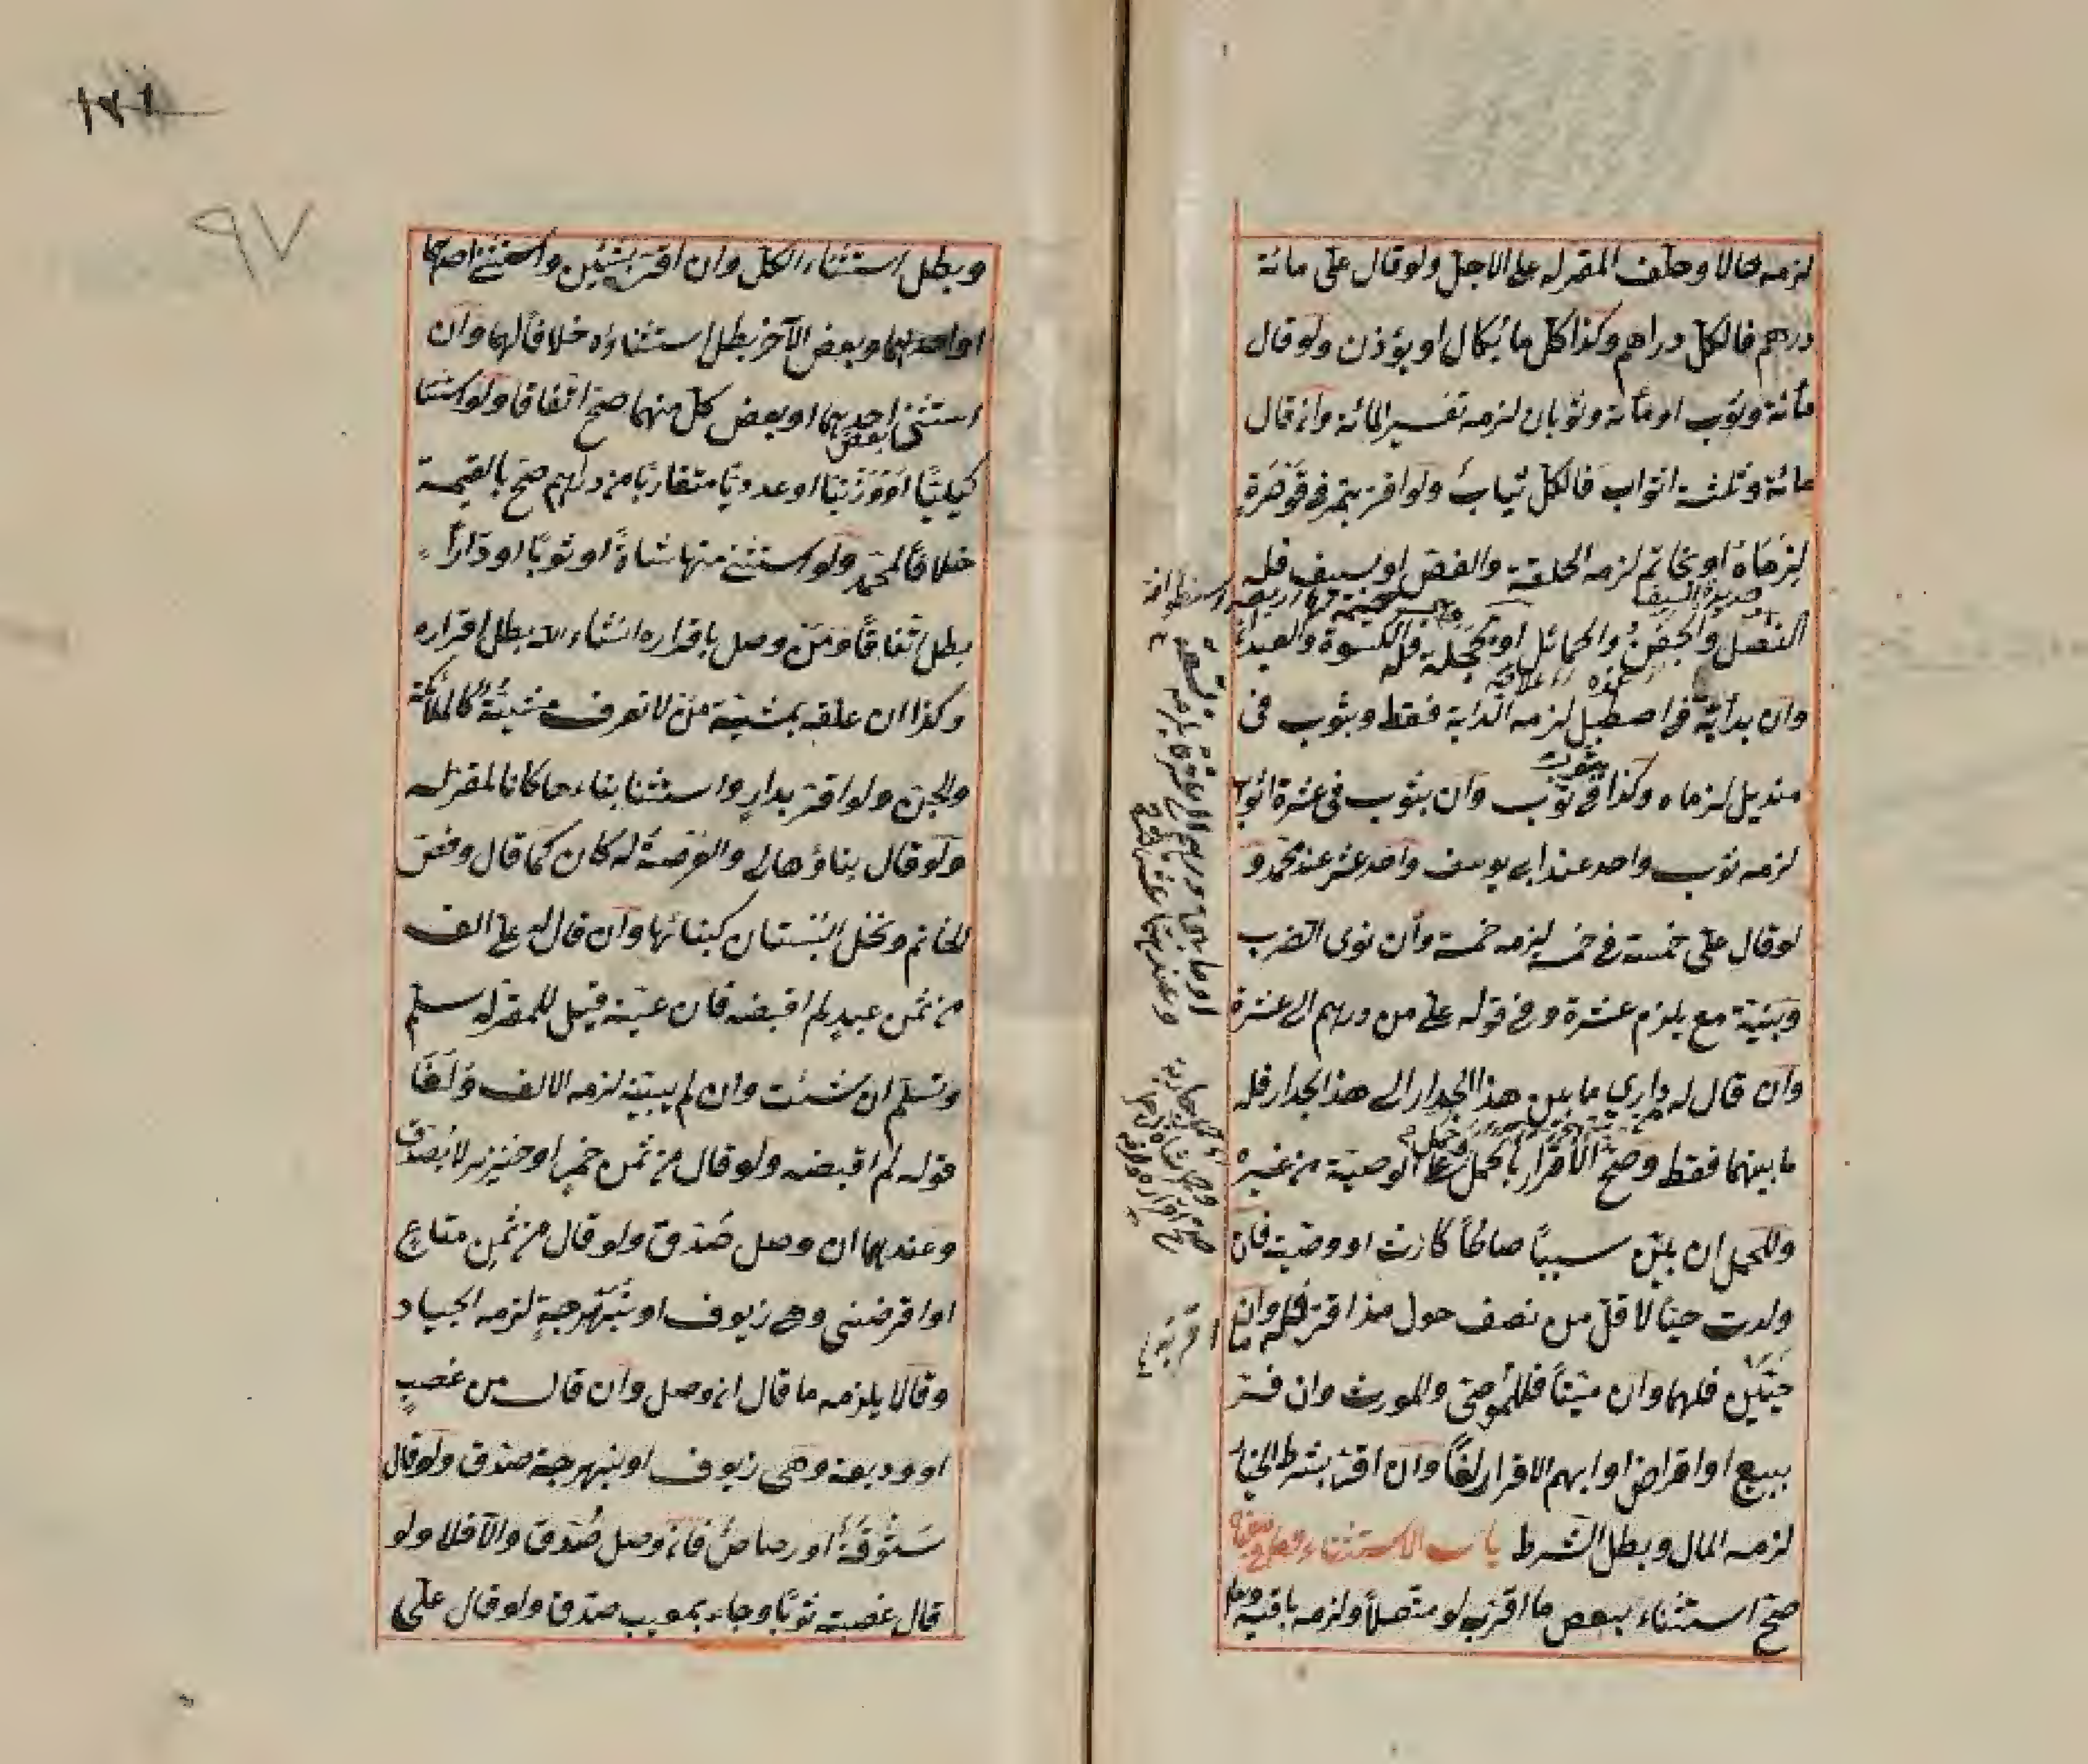 لزمه حالا وحلف المقر له على الاجل ولو قال علي مائة
درهم فالكل دراهم وكذا كل ما يكال او يوزن ولو قال
مائة وثوب او مائة وثوبان لزمه تفسير المائة وان قال
مائة وثلثة اثواب فالكل ثياب ولو اقر بتمر في قوصرة
لزماه او بخاتم لزمه الحلقة والفص او بسيف فله
حديدة السيف
النصل والجفن والحمائل او بحجلة فله الكسوة والعيدان
وان بدابة في اصطبل لزمه الدابة فقط وبثوب في
منديل لزماه وكذا بثوب في ثوب وان بثوب في عشرة اثواب
لزمه ثوب واحد عند ابي يوسف واحد عشر عند محمد و
لو قال علي خمسة في خمسة لزمه خمسة وان نوى الضرب
وبنية مع يلزم عشرة وفي قوله علي من درهم الى عشرة
وان قال له داري ما بين هذا الجدار الى هذا الجدار فله
ما بينهما فقط وصح الاقرار بالحمل وحمل على الوصية من غيره
وللحمل ان بين سببا صالحا كارث او وصية فان
ولدت حيا لاقل من نصف حول مذ اقر فله ما اقر به وان
حيين فلهما وان ميتا فللموصي والمورث وان فسر
ببيع او اقراض او ابهم الاقرار لغا وان اقر بشرط الخيار
لزمه المال وبطل الشرط باب الاستثناء وما في معناه
صح استثناء بعض ما اقر به لو متصلا ولزمه باقيه
وبطل استثناء الكل وان اقر بشيئين واستثنى احدهما
او احدهما وبعض الآخر بطل استثناؤه خلافا لهما وان
استثنى بعض احدهما او بعض كل منهما صح اتفاقا ولو استثنا
كيليا او وزنيا او عدديا متقاربا من دراهم صح بالقيمة
خلافا لمحمد ولو استثنى منها شاة او ثوبا او دارا
بطل اتفاقا ومن وصل باقراره انشاء الله بطل اقراره
وكذا ان علقه بمشية من لا تعرف مشيئة كالملائكة
والجن ولو اقر بدار واستثنا بناءها كانا للمقر له
ولو قال بناؤها لي والعرصة له كان كما قال وفص
الخاتم ونخل البستان كبنائها وان قال له علي الف
من ثمن عبد لم اقبضه فان عينه قيل للمقر له سلم
وتسلم ان شئت وان لم يبينه لزمه الالف ولغا
قوله لم اقبضه ولو قال من ثمن خمر او خنزير لا يصدق
وعندهما ان وصل صدق ولو قال من ثمن متاع
او اقرضني وهي زيوف او نبهرجة لزمه الجياد
وقالا يلزمه ما قال ان وصل وان قال من غصب
او وديعة وهي زيوف او نبهرجة صدق ولو قال
ستوقة او رصاص فان وصل صدق والا فلا ولو
قال غصبته ثوبا وجاء بمعيب صدق ولو قال علي
٩٧